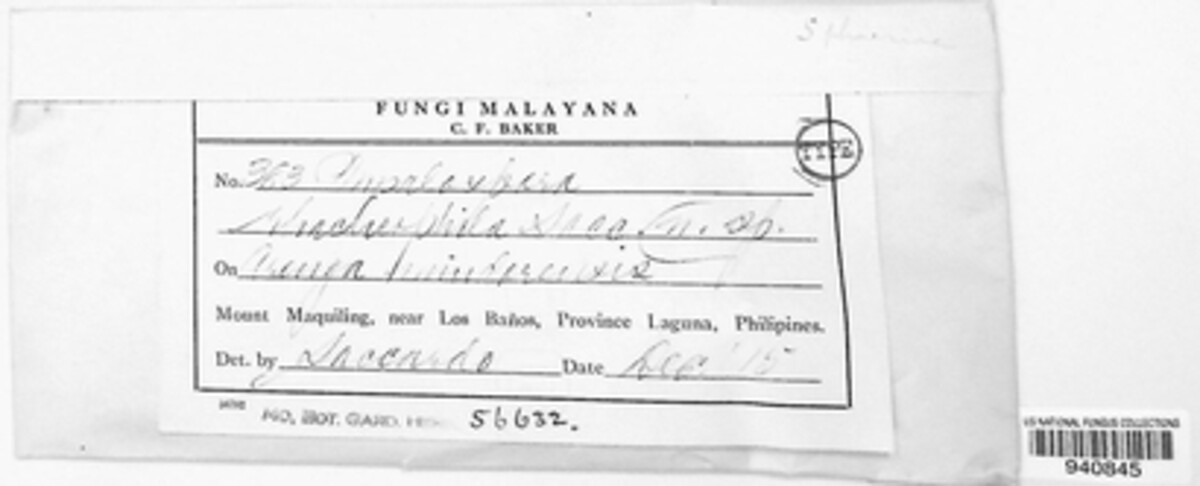 FUNGI MALAYANA
C. F. BAKER
TYPE
No. 363
Sacc. n. sp.
On Arenga mindorensis
Mount Maquiling, near Los Baños, Province Laguna, Philipines.
Det. by Saccardo Date Dec '15
MO. BOT. GARD. HERB. 56632.
US NATIONAL FUNGUS COLLECTIONS
940845